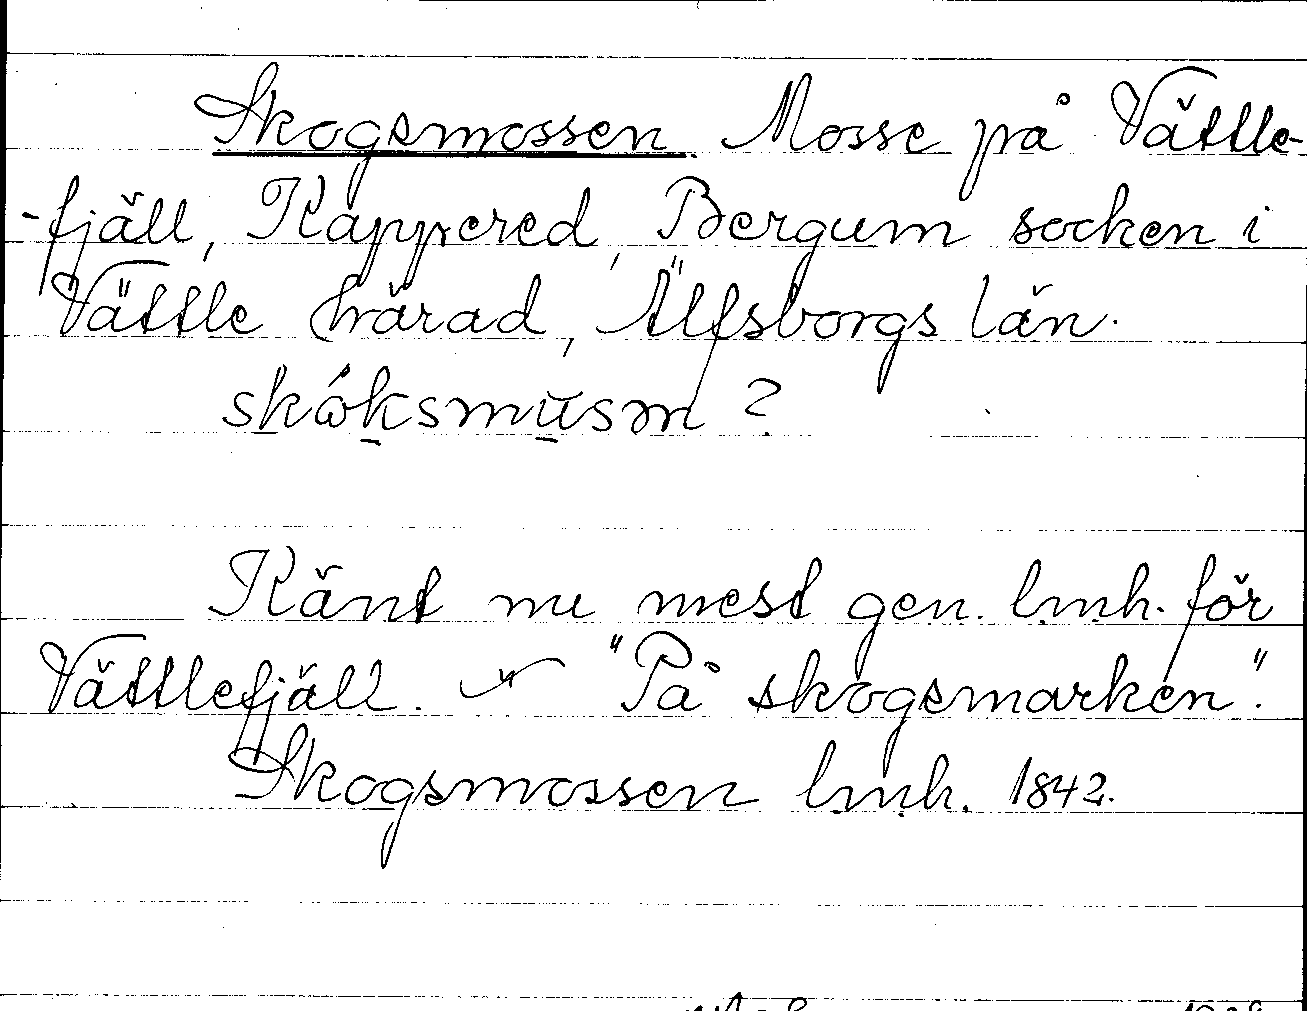 Skogsmossen. Mosse på Vättle-
-fjäll, Kappered, Bergum socken i
Vättle härad, Älfsborgs län.
skóksmusən ?
Känt nu mest gen. lmh. för
Vättlefjäll. "På skogsmarken".
Skogsmossen lmh. 1842.